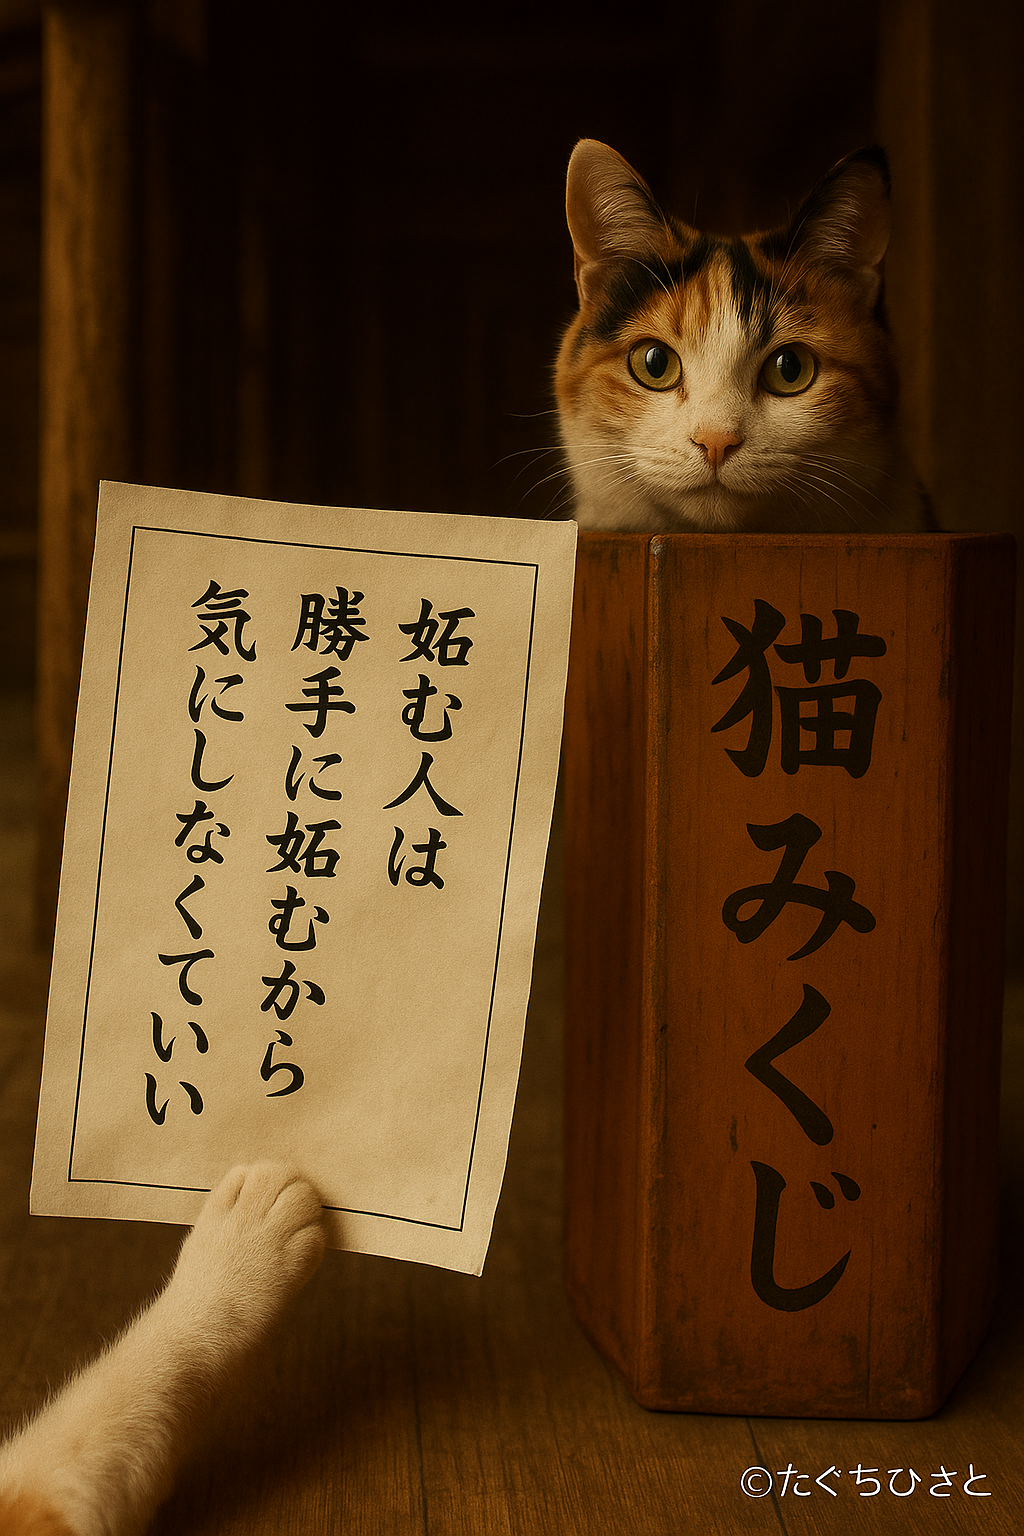 妬む人は
勝手に妬むから
気にしなくていい
猫みくじ
©たぐちひさと